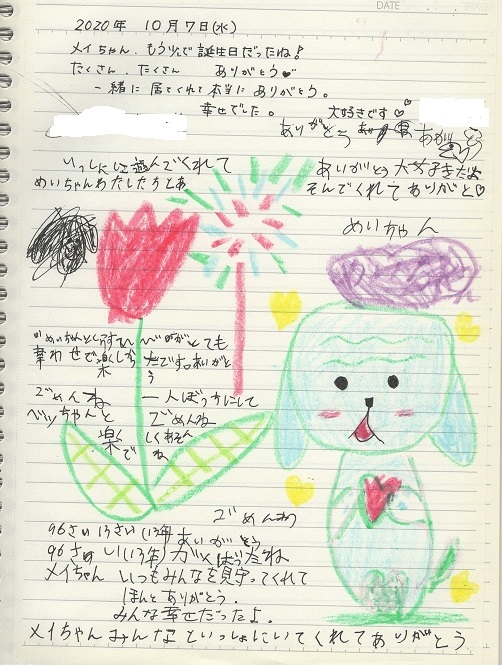 DATE
2020年 10月7日(水)
メイちゃん、もう少しで誕生日だったね!
たくさん、たくさん ありがとう♥
一緒に居てくれて本当にありがとう。
幸せでした。 大好きです♡
ありがとう
いっしょに遊んでくれて
めいちゃんわたしたち
あいがとう大好きだよ
そんでくれてありがと♡
めいちゃん
とても
幸わせで楽しかったです。あいがと
う
ごめんね 一人ぼっちにして
ベッツちゃんと ごめんね
楽しくあそん
でね
ごめんね
96さい13さい(13年)あいがとう
96さい(13年)がんばったね
メイちゃん いつもみんなを見守ってくれて
ほんとありがとう。
みんな幸せだったよ。
メイちゃんみんなといっしょにいてくれてありがとう